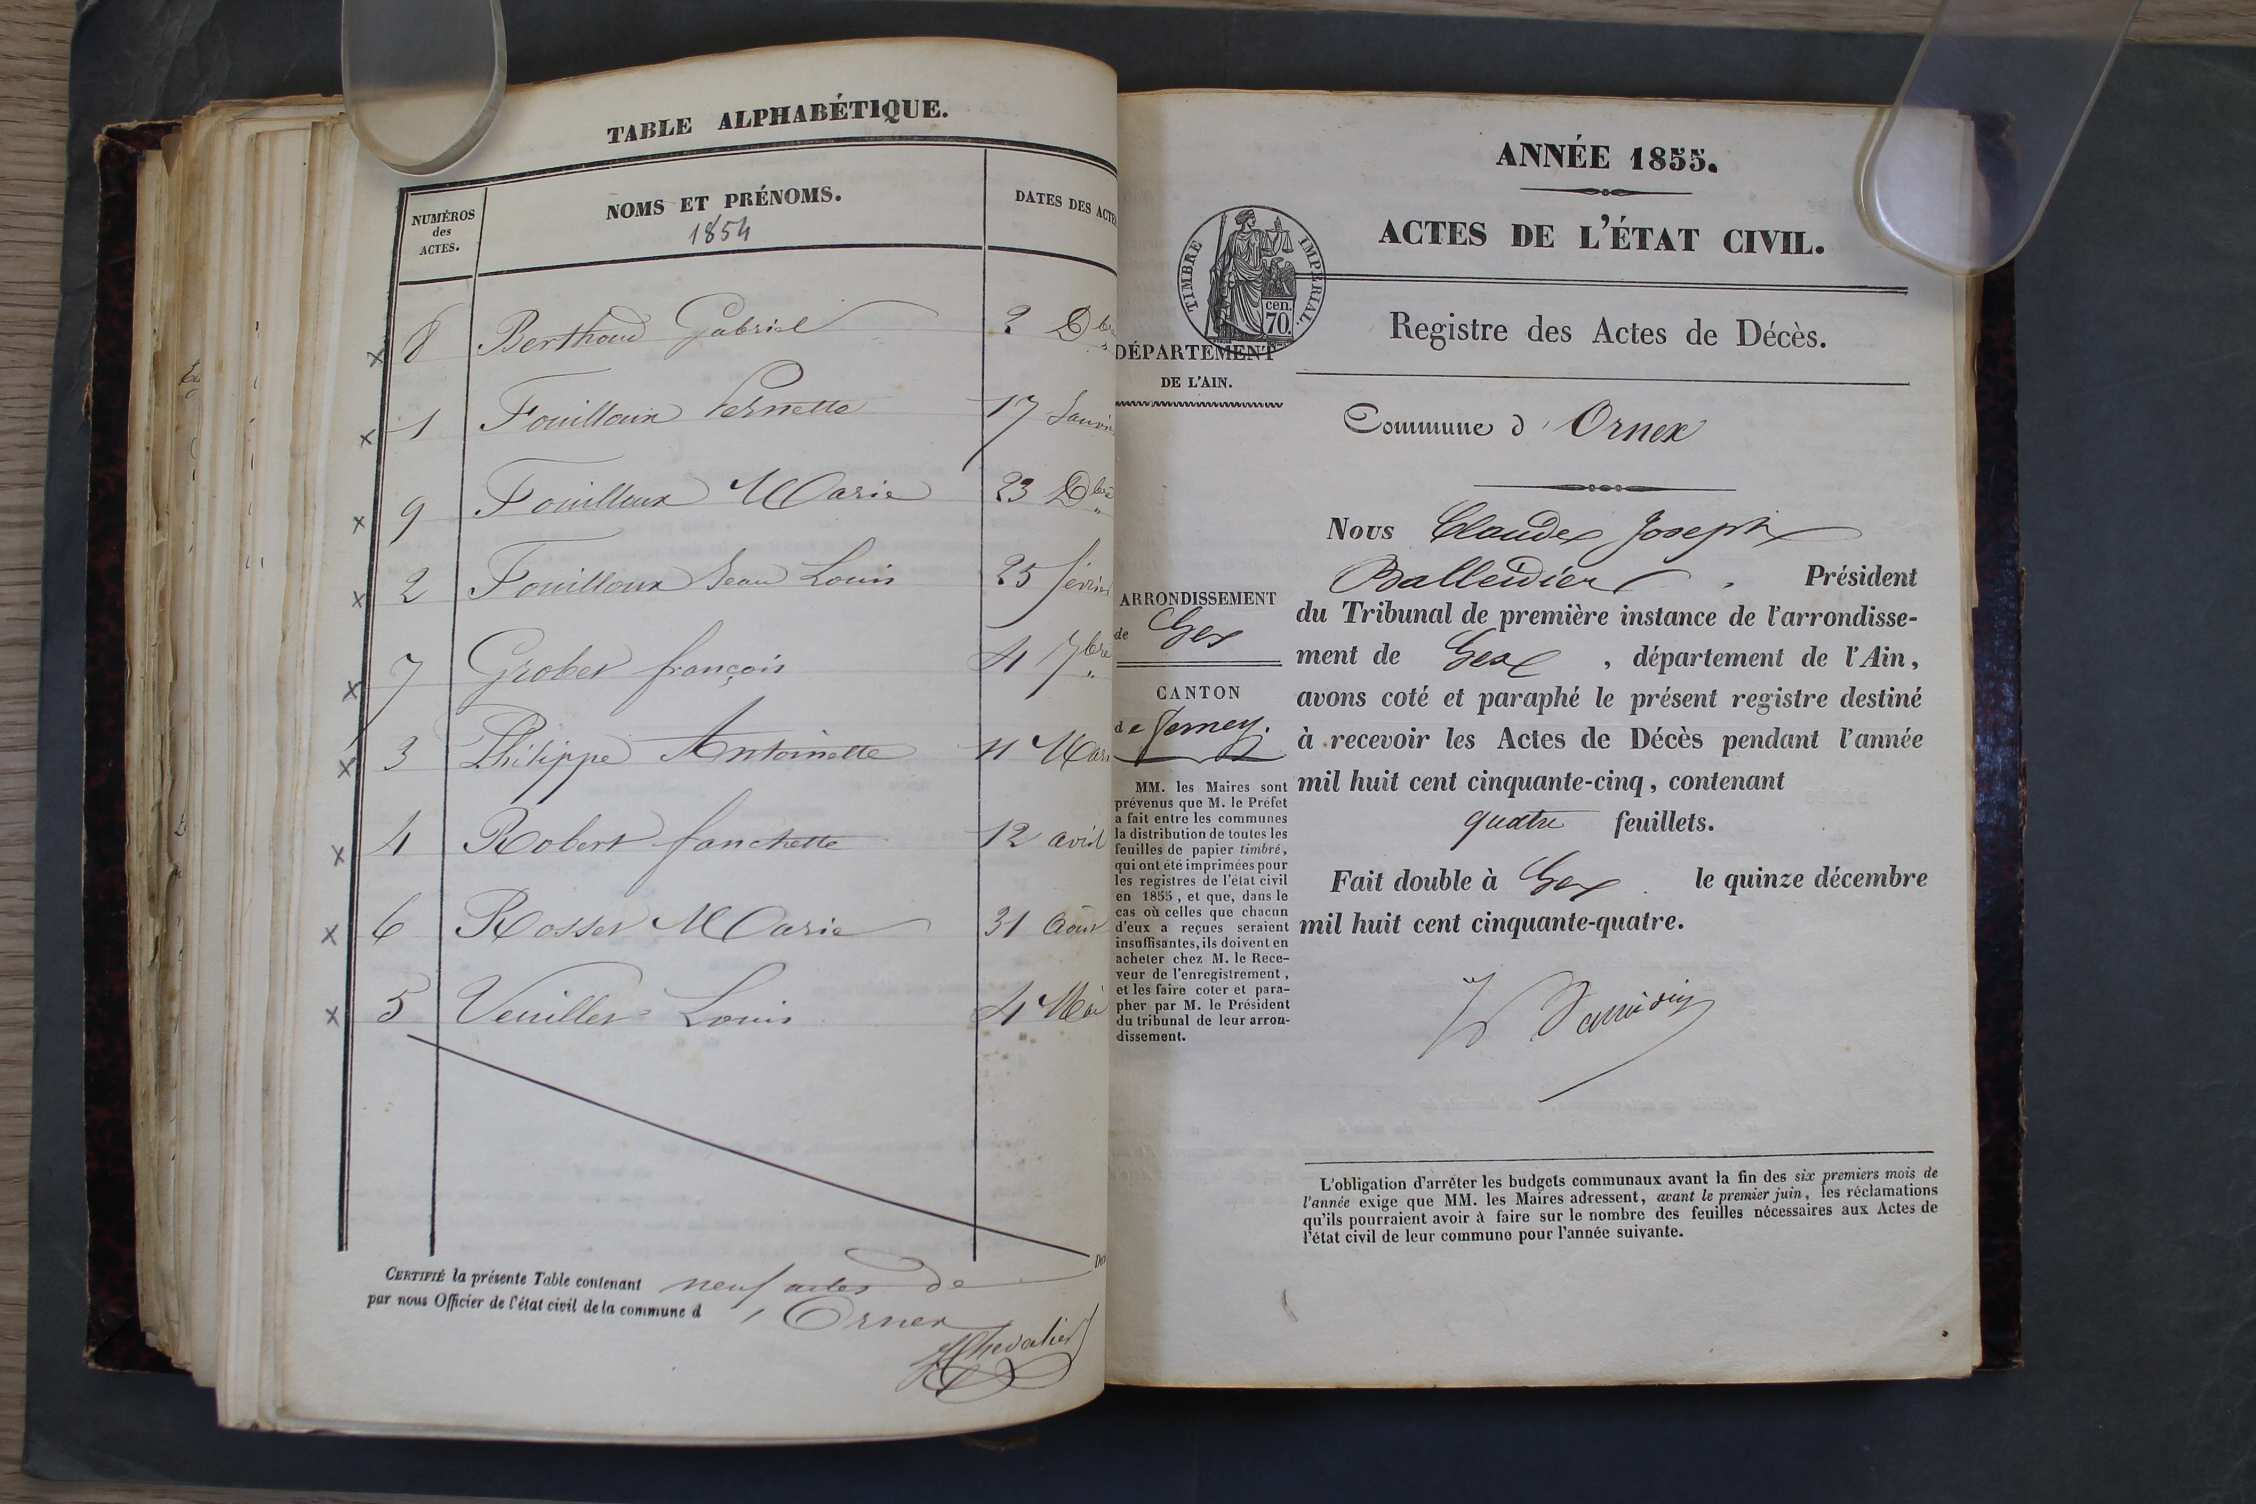 TABLE ALPHABÉTIQUE.
NUMÉROS
des
ACTES.
NOMS ET PRÉNOMS.
1854
DATES DES ACTE
8 Berthoud Gabriel 2 Dbre
1 Fouilloux Pernette 17 Janvier
9 Fouilloux Marie 23 Dbre
2 Fouilloux Jean Louis 25 février
7 Grobet françois 4 7bre
3 Philippe Antoinette 11 Mars
4 Robert fanchette 12 avril
6 Rosset Marie 31 Août
5 Veuillet Louis 4 Mai
CERTIFIÉ la présente Table contenant neuf actes de
par nous Officier de l'état civil de la commune d'Ornex
Chevalier
ANNÉE 1855.
ACTES DE L'ÉTAT CIVIL.
TIMBRE IMPÉRIAL.
cen.
70.
Registre des Actes de Décès.
DÉPARTEMENT
DE L'AIN.
Commune d'Ornex
Nous Claude Joseph
Balleidier Président
du Tribunal de première instance de l'arrondisse-
ment de Gex, département de l'Ain,
avons coté et paraphé le présent registre destiné
à recevoir les Actes de Décès pendant l'année
mil huit cent cinquante-cinq, contenant
quatre feuillets.
Fait double à Gex le quinze décembre
mil huit cent cinquante-quatre.
ARRONDISSEMENT
de Gex
CANTON
de Ferney.
MM. les Maires sont
prévenus que M. le Préfet
a fait entre les communes
la distribution de toutes les
feuilles de papier timbré,
qui ont été imprimées pour
les registres de l'état civil
en 1855, et que, dans le
cas où celles que chacun
d'eux a reçues seraient
insuffisantes, ils doivent en
acheter chez M. le Rece-
veur de l'enregistrement,
et les faire coter et para-
pher par M. le Président
du tribunal de leur arron-
dissement.
L'obligation d'arrêter les budgets communaux avant la fin des six premiers mois de
l'année exige que MM. les Maires adressent, avant le premier juin, les réclamations
qu'ils pourraient avoir à faire sur le nombre des feuilles nécessaires aux Actes de
l'état civil de leur commune pour l'année suivante.